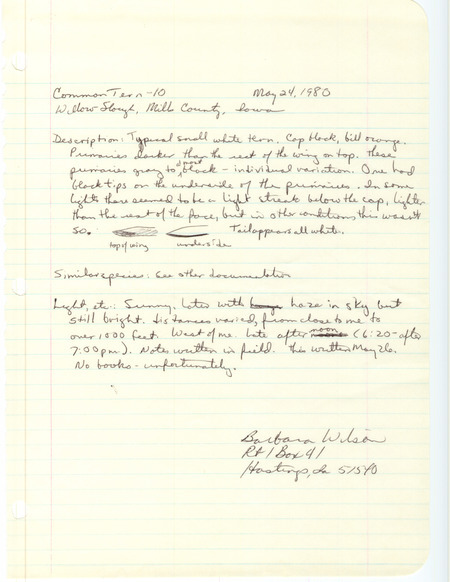 Common Tern - 10 May 24, 1980
Willow Slough, Mills County, Iowa
Description: Typical small white tern. Cap black, bill orange.
Primaries darker than the rest of the wing on top. These
primaries gray to almost black - individual variation. One had
black tips on the underside of the primaries. In some
lights there seemed to be a light streak below the cap, lighter
than the rest of the face, but in other conditions this wasn't
so. Tail appears all white.
top of wing underside
Similar species: see other documentation
Light, etc.: Sunny. Later with haze in sky but
still bright. Distances varied, from close to me to
over 1000 feet. West of me. Late afternoon (6:20-after
7:00 pm). Notes written in field. This written May 26.
No books - unfortunately.
Barbara Wilson
Rt 1 Box 41
Hastings, Ia 51540